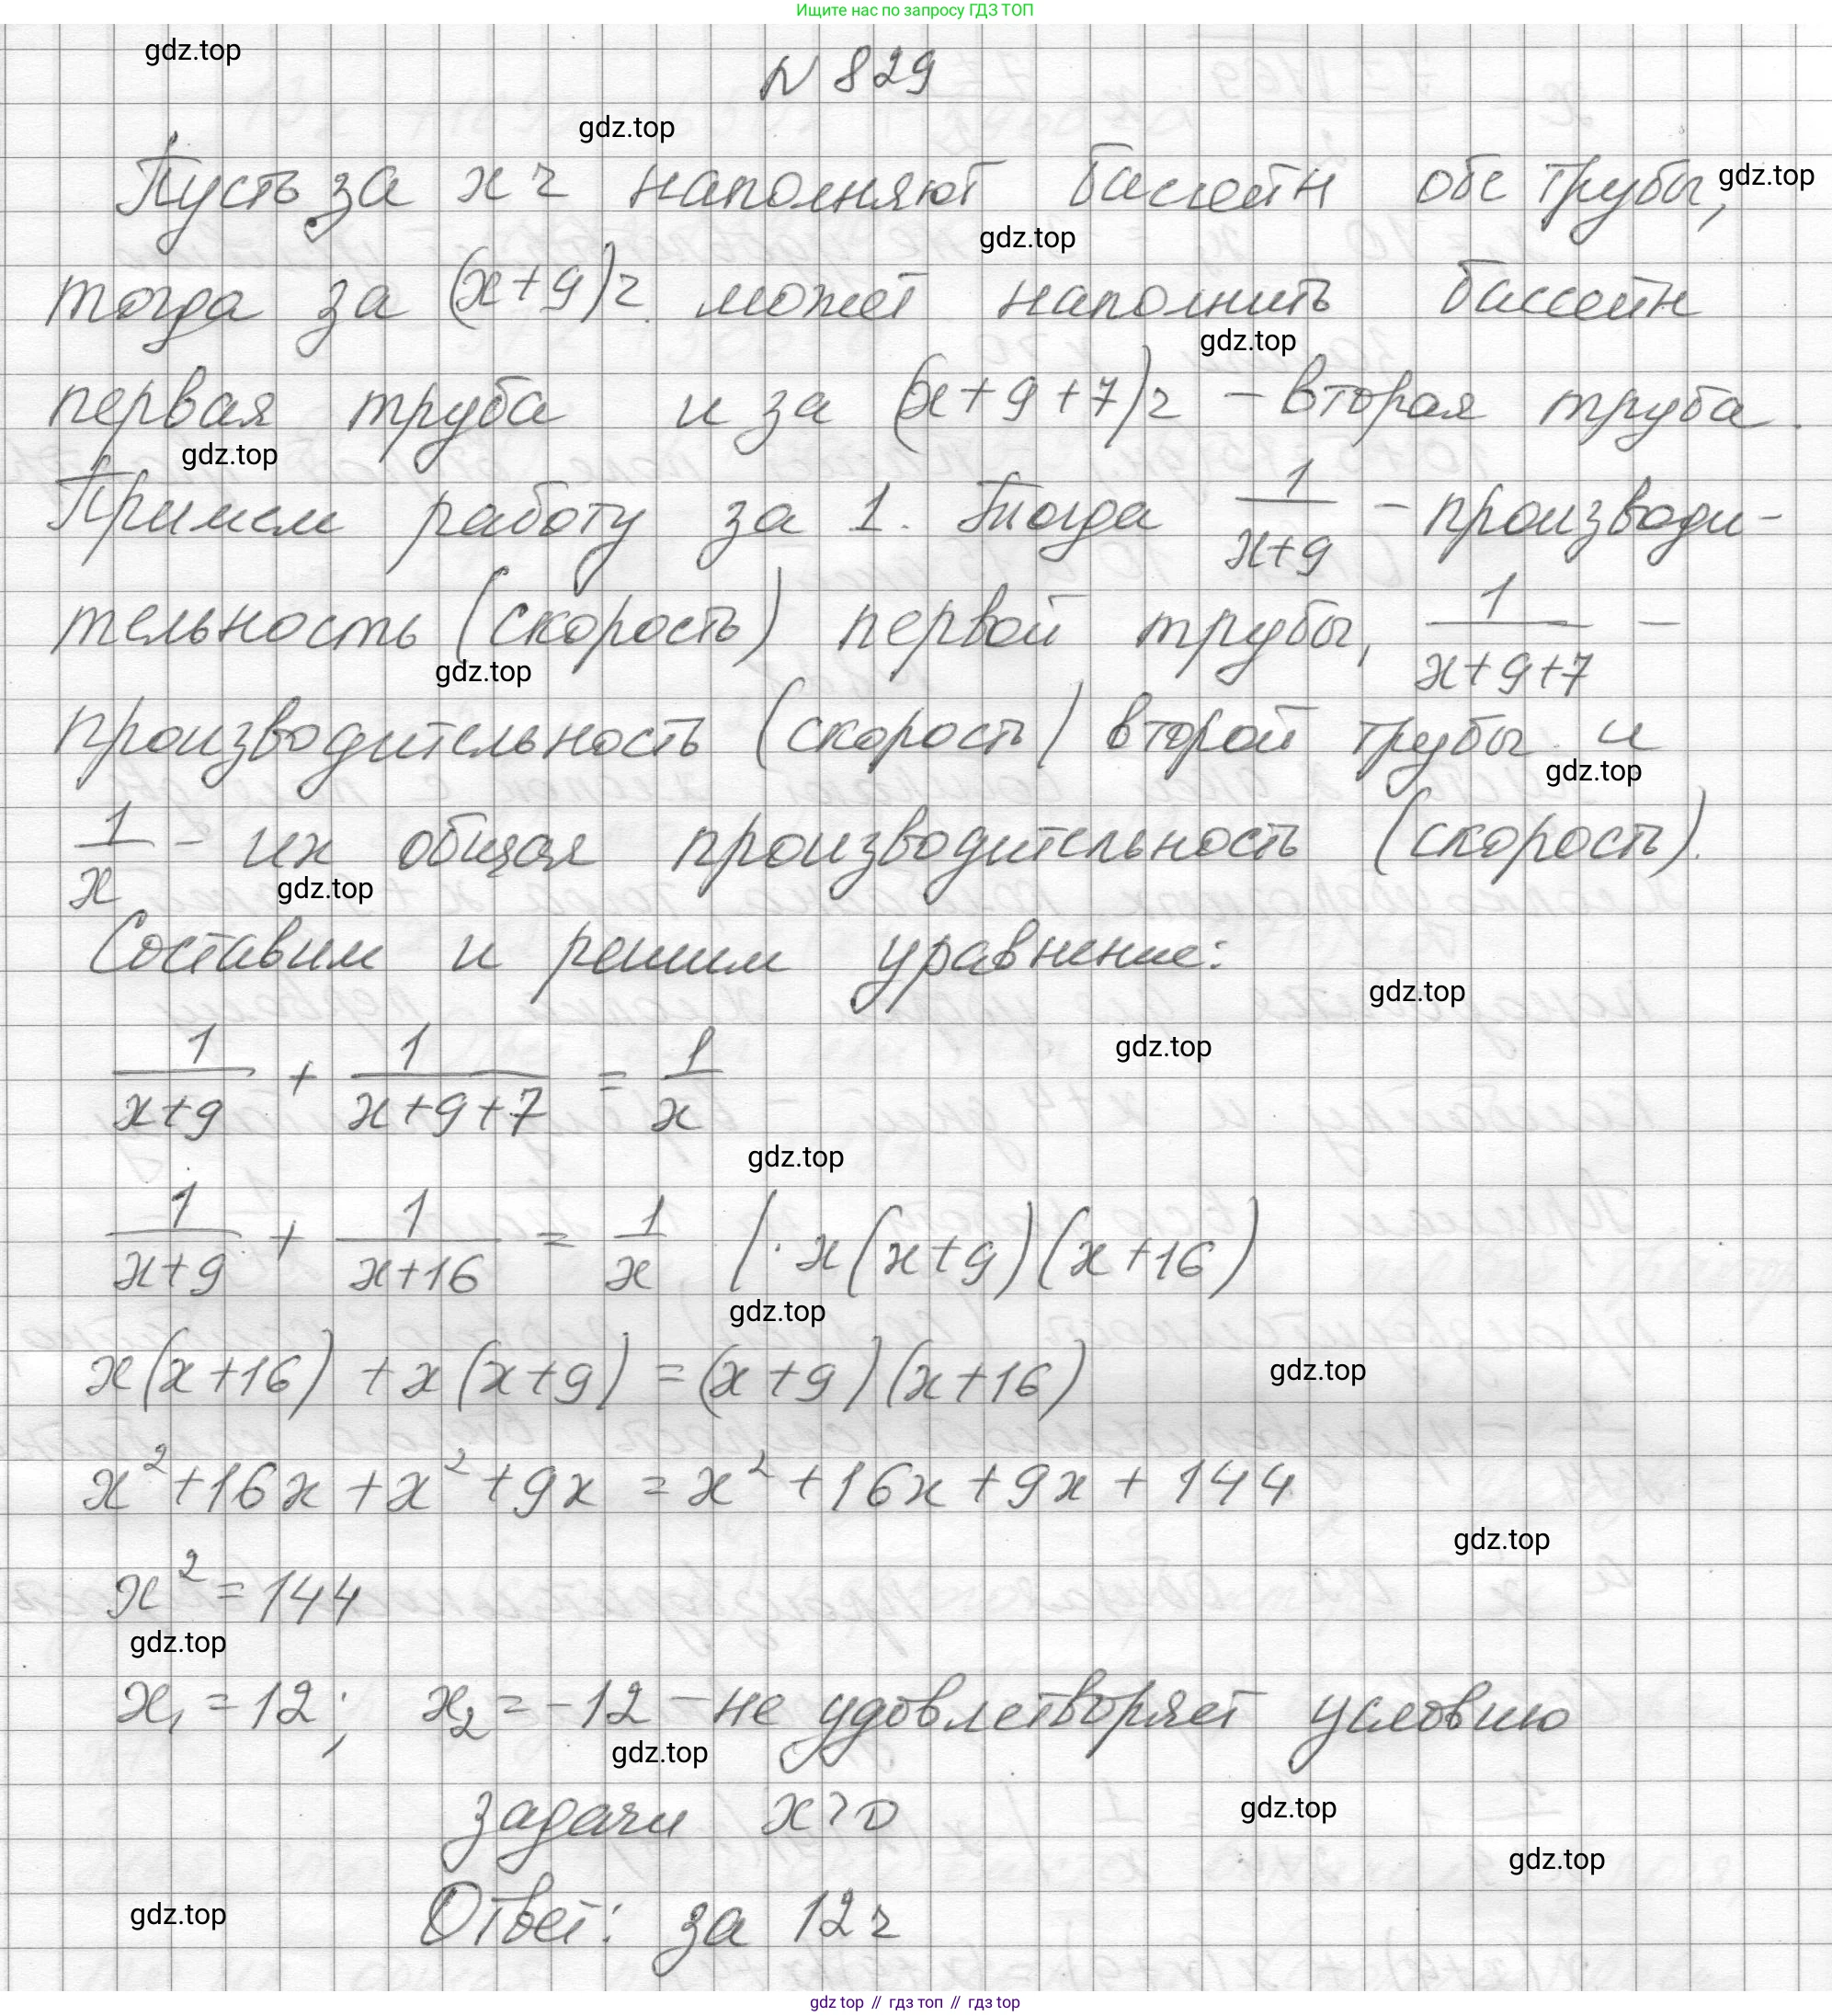 Ищите нас по запросу ГДЗ ТОП
gdz.top
N 829
gdz.top
Пусть за x ч наполняют бассейн обе трубы,
gdz.top
gdz.top
тогда за (x+9) ч может наполнить бассейн
gdz.top
первая труба и за (x+9+7) ч – вторая труба.
gdz.top
Примем работу за 1. Тогда 1/(x+9) – производи-
тельность (скорость) первой трубы, 1/(x+9+7) –
gdz.top
производительность (скорость) второй трубы и
gdz.top
1/x – их общая производительность (скорость).
gdz.top
Составим и решим уравнение:
gdz.top
gdz.top
1/(x+9) + 1/(x+9+7) = 1/x
gdz.top
1/(x+9) + 1/(x+16) = 1/x | · x(x+9)(x+16)
gdz.top
x(x+16) + x(x+9) = (x+9)(x+16)
gdz.top
x² + 16x + x² + 9x = x² + 16x + 9x + 144
gdz.top
x² = 144
gdz.top
x₁ = 12; x₂ = -12 – не удовлетворяет условию
gdz.top
задачи x>0
gdz.top
gdz.top
Ответ: за 12 ч
gdz.top
gdz top // гдз топ // gdz top